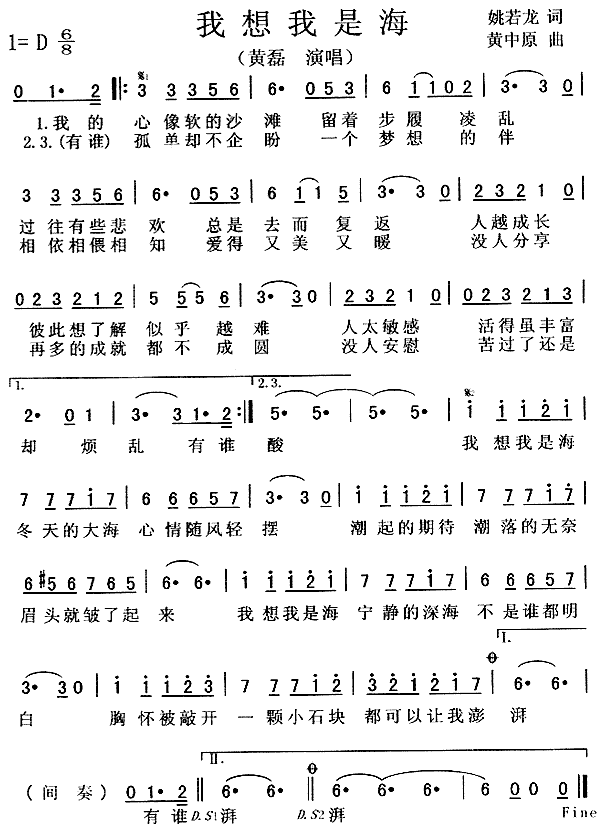 我想我是海
姚若龙 词
1= D 6/8
(黄磊 演唱)
黄中原 曲
0 1· 2 3 3 3 5 6 6· 0 5 3 6 1 1 0 2 3· 3 0
1.我的 心像软的沙滩 留着步履凌乱
2.3.(有谁) 孤单却不企盼 一个梦想的伴
3 3 3 5 6 6· 0 5 3 6 1 1 5 3· 3 0 2 3 2 1 0
过往有些悲欢 总是去而复返 人越成长
相依相偎相知 爱得又美又暖 没人分享
0 2 3 2 1 2 5 5 5 6 3· 3 0 2 3 2 1 0 0 2 3 2 1 3
彼此想了解似乎越难 人太敏感 活得虽丰富
再多的成就都不成圆 没人安慰 苦过了还是
1. 2.3.
2· 0 1 3· 3 1· 2 5· 5· 5· 5· 1 1 1 2 1
却烦乱 有谁酸 我想我是海
7 7 7 1 7 6 6 6 5 7 3· 3 0 1 1 1 2 1 7 7 7 1 7
冬天的大海 心情随风轻摆 潮起的期待 潮落的无奈
6 #5 6 7 6 5 6· 6· 1 1 1 2 1 7 7 7 1 7 6 6 6 5 7
眉头就皱了起来 我想我是海 宁静的深海 不是谁都明
I.
3· 3 0 1 1 1 2 3 7 7 7 1 2 3 2 1 2 1 7 6· 6·
白 胸怀被敲开 一颗小石块 都可以让我澎湃
II.
(间奏) 0 1· 2 6· 6· 6· 6· 6· 6· 6 0 0 0
有谁D.S1湃 D.S2湃 Fine